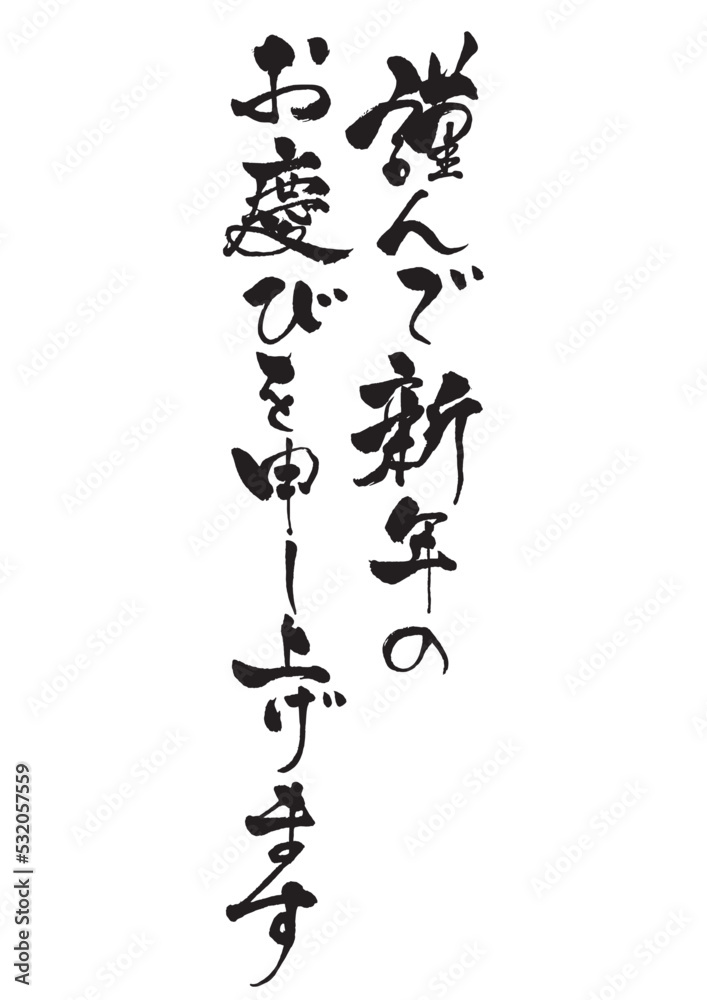 謹んで新年の
お慶びを申し上げます
Adobe Stock | #532057559